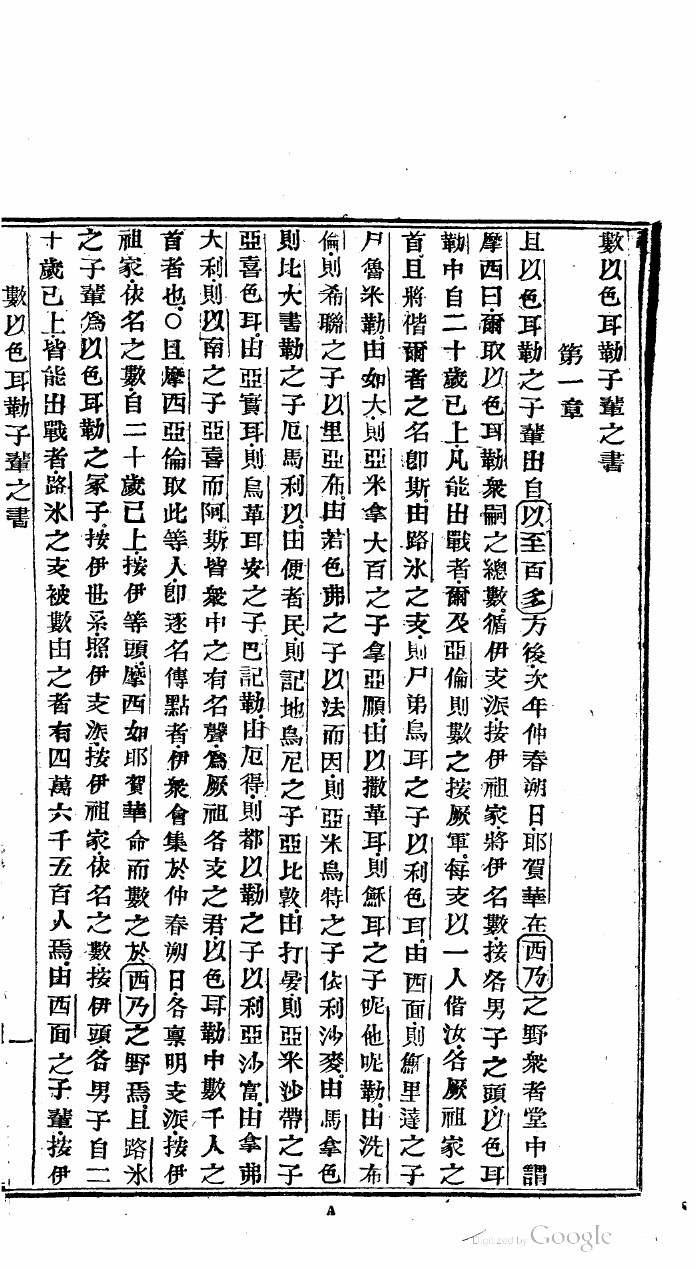 數以色耳勒子輩之書
第一章
且以色耳勒之子輩出自以至百多方後次年仲春朔日耶賀華在西乃之野衆者堂中謂
摩西曰爾取以色耳勒衆嗣之總數循伊支派按伊祖家將伊名數按各男子之頭以色耳
勒中自二十歲已上凡能出戰者爾及亞倫則數之按厥軍每支以一人偕汝各厥祖家之
首且將偕爾者之名卽斯由路氷之支則尸弟烏耳之子以利色耳由西面則穌里達之子
尸魯米勒由如大則亞米拿大百之子拿亞順由以撒革耳則穌耳之子呢他呢勒由洗布
倫則希聯之子以里亞布由若色弗之子以法而因則亞米烏特之子依利沙麥由馬拿色
則比大書勒之子厄馬利以由便者民則記地烏尼之子亞比敦由打晏則亞米沙帶之子
亞喜色耳由亞實耳則烏革耳安之子巴記勒由厄得則都以勒之子以利亞沙富由拿弗
大利則以南之子亞喜而阿斯皆衆中之有名聲爲厥祖各支之君以色耳勒中數千人之
首者也○且摩西亞倫取此等人卽逐名傳點者伊衆會集於仲春朔日各稟明支派按伊
祖家依名之數自二十歲已上按伊等頭摩西如耶賀華命而數之於西乃之野焉且路氷
之子輩爲以色耳勒之冡子按伊世系照伊支派按伊祖家依名之數按伊頭各男子自二
十歲已上皆能出戰者路氷之支被數由之者有四萬六千五百人焉由西面之子輩按伊
數以色耳勒子輩之書
一
A
Digitized by Google